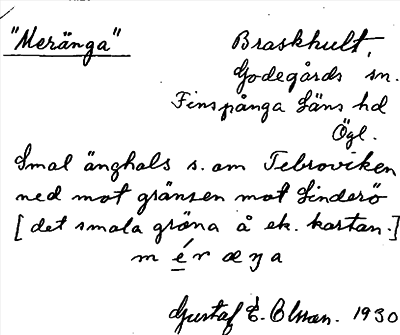 "Meränga"
Braskhult,
Godegårds sn.
Finspånga läns hd
Ögl.
Smal änghals s. om Tebroviken
ned mot gränsen mot Linderö
[det smala gröna å ek. kartan.]
m é r æ ŋ a
Gustaf E. Olsson. 1930